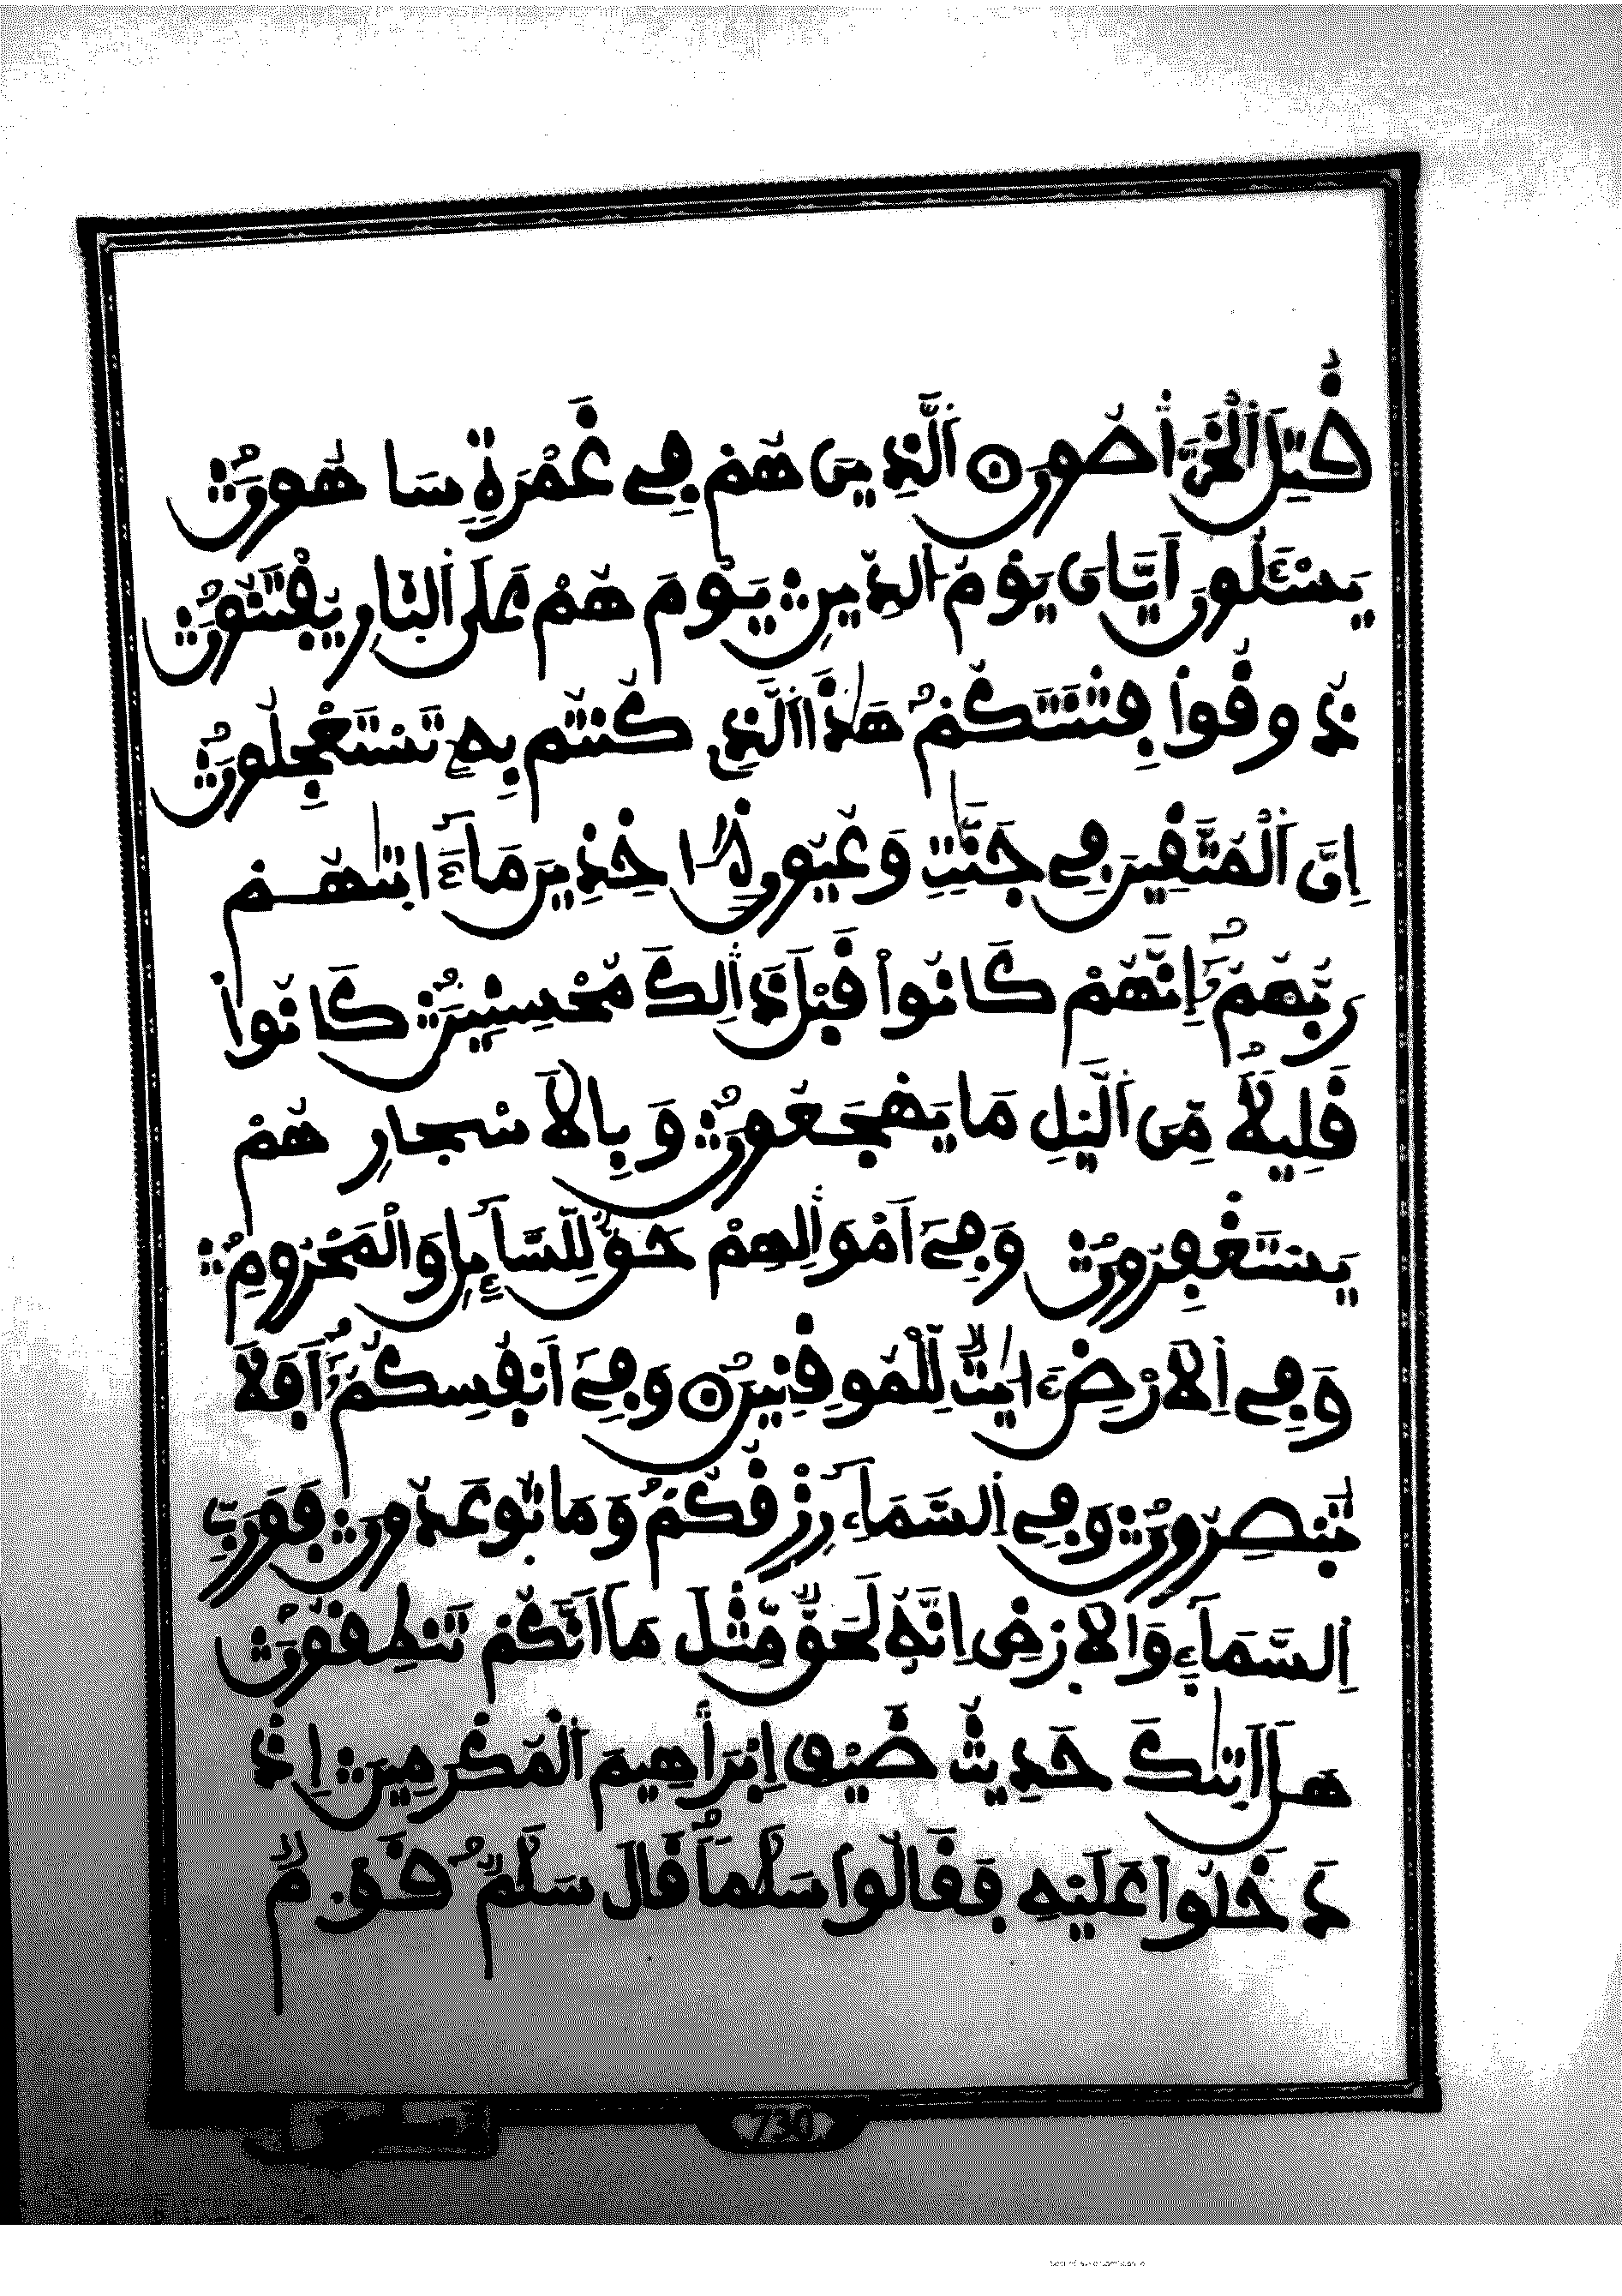 قُتِلَ ٱلْخَرَّٰصُونَ ۝ ٱلَّذِينَ هُمْ فِے غَمْرَةٖ سَاهُونَ
يَسْـَٔلُونَ أَيَّانَ يَوْمُ ٱلدِّينِ يَوْمَ هُمْ عَلَى ٱلنّارِ يُفْتَنُونَ
ذُوقُوا۟ فِتْنَتَكُمْ هَٰذَا ٱلَّذِے كُنتُم بِهِۦ تَسْتَعْجِلُونَ
إِنَّ ٱلْمُتَّقِينَ فِے جَنَّٰتٖ وَعُيُونٍ ءَاخِذِينَ مَآ ءَاتَىٰهُمْ
رَبُّهُمُۥٓ إِنَّهُمْ كَانُوا۟ قَبْلَ ذَٰلِكَ مُحْسِنِينَ كَانُوا۟
قَلِيلاٗ مِّنَ ٱلَّيْلِ مَا يَهْجَعُونَ وَبِالْأَسْحَارِ هُمْ
يَسْتَغْفِرُونَ وَفِےٓ أَمْوَٰلِهِمْ حَقّٞ لِّلسَّآئِلِ وَالْمَحْرُومِ
وَفِے ٱلْأَرْضِ ءَايَٰتٞ لِّلْمُوقِنِينَ ۝ وَفِےٓ أَنفُسِكُمُۥٓ أَفَلَا
تُبْصِرُونَ وَفِے ٱلسَّمَآءِ رِزْقُكُمْ وَمَا تُوعَدُونَ فَوَرَبِّ
ٱلسَّمَآءِ وَالْأَرْضِ إِنَّهُۥ لَحَقّٞ مِّثْلَ مَآ أَنَّكُمْ تَنطِقُونَ
هَلْ أَتَىٰكَ حَدِيثُ ضَيْفِ إِبْرَٰهِيمَ ٱلْمُكْرَمِينَ إِذْ
دَخَلُوا۟ عَلَيْهِ فَقَالُوا۟ سَلَٰماٗ قَالَ سَلَٰمٞ قَوْمٞ
730